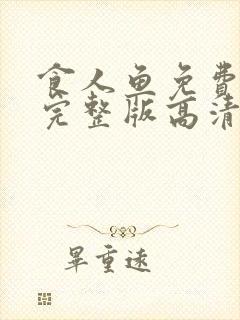 食人鱼免费
完整版高清
畢重遠